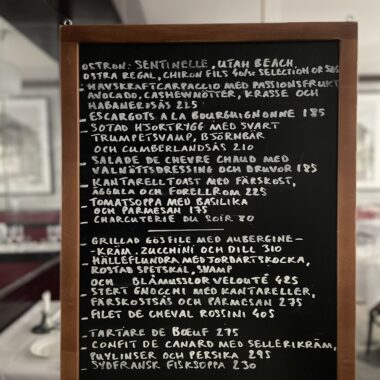 OSTRON: SENTINELLE, UTAH BEACH
OSTRA REGAL, CHIRON FILS 40/ST SELECTION OR
- HAVSKRÄFTCARPACCIO MED PASSIONSFRUKT
AVOCADO, CASHEWNÖTTER, KRASSE OCH
HABANEROSÅS 225
- ESCARGOTS A LA BOURGUIGNONNE 185
- SOTAD HJORTRYGG MED SVART
TRUMPETSVAMP, BJÖRNBÄR
OCH CUMBERLANDSÅS 210
- SALADE DE CHEVRE CHAUD MED
VALNÖTTSDRESSING OCH DRUVOR 185
- KANTARELLTOAST MED FÄRSKOST,
ÄGGULA OCH FORELLROM 225
- TOMATSOPPA MED BASILIKA
OCH PARMESAN 175
- CHARCUTERIE DU SOIR 80
- GRILLAD GÖSFILE MED AUBERGINE-
- KRÄM, ZUCCHINI OCH DILL 310
- HÄLLEFLUNDRA MED JORDÄRTSKOCKA,
ROSTAD SPETSKÅL, SVAMP
OCH BLÅMUSSLOR VELOUTÉ 425
- STEKT GNOCCHI MED KANTARELLER,
FÄRSKOSTSÅS OCH PARMESAN 275
- FILET DE CHEVAL ROSSINI 405
- TARTARE DE BŒUF 275
- CONFIT DE CANARD MED SELLERIKRÄM,
PUYLINSER OCH PERSIKA 295
- SYDFRANSK FISKSOPPA 230